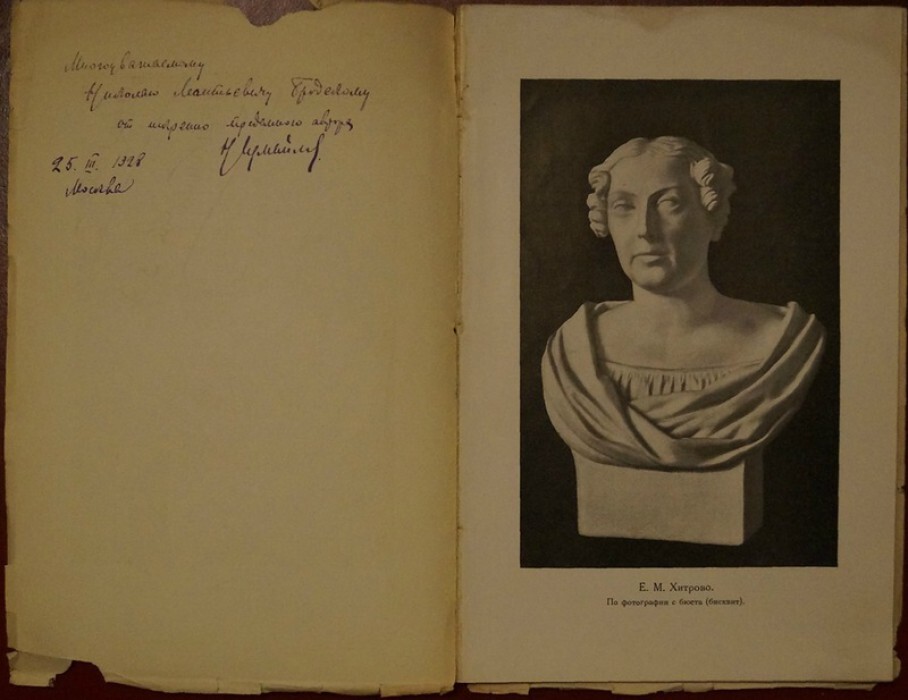 Многоуважаемому
Николаю Леонтьевичу Бродскому
от искренно преданного автора
Н Измайлов.
25. III. 1928
Москва
Е. М. Хитрово.
По фотографии с бюста (бисквит).